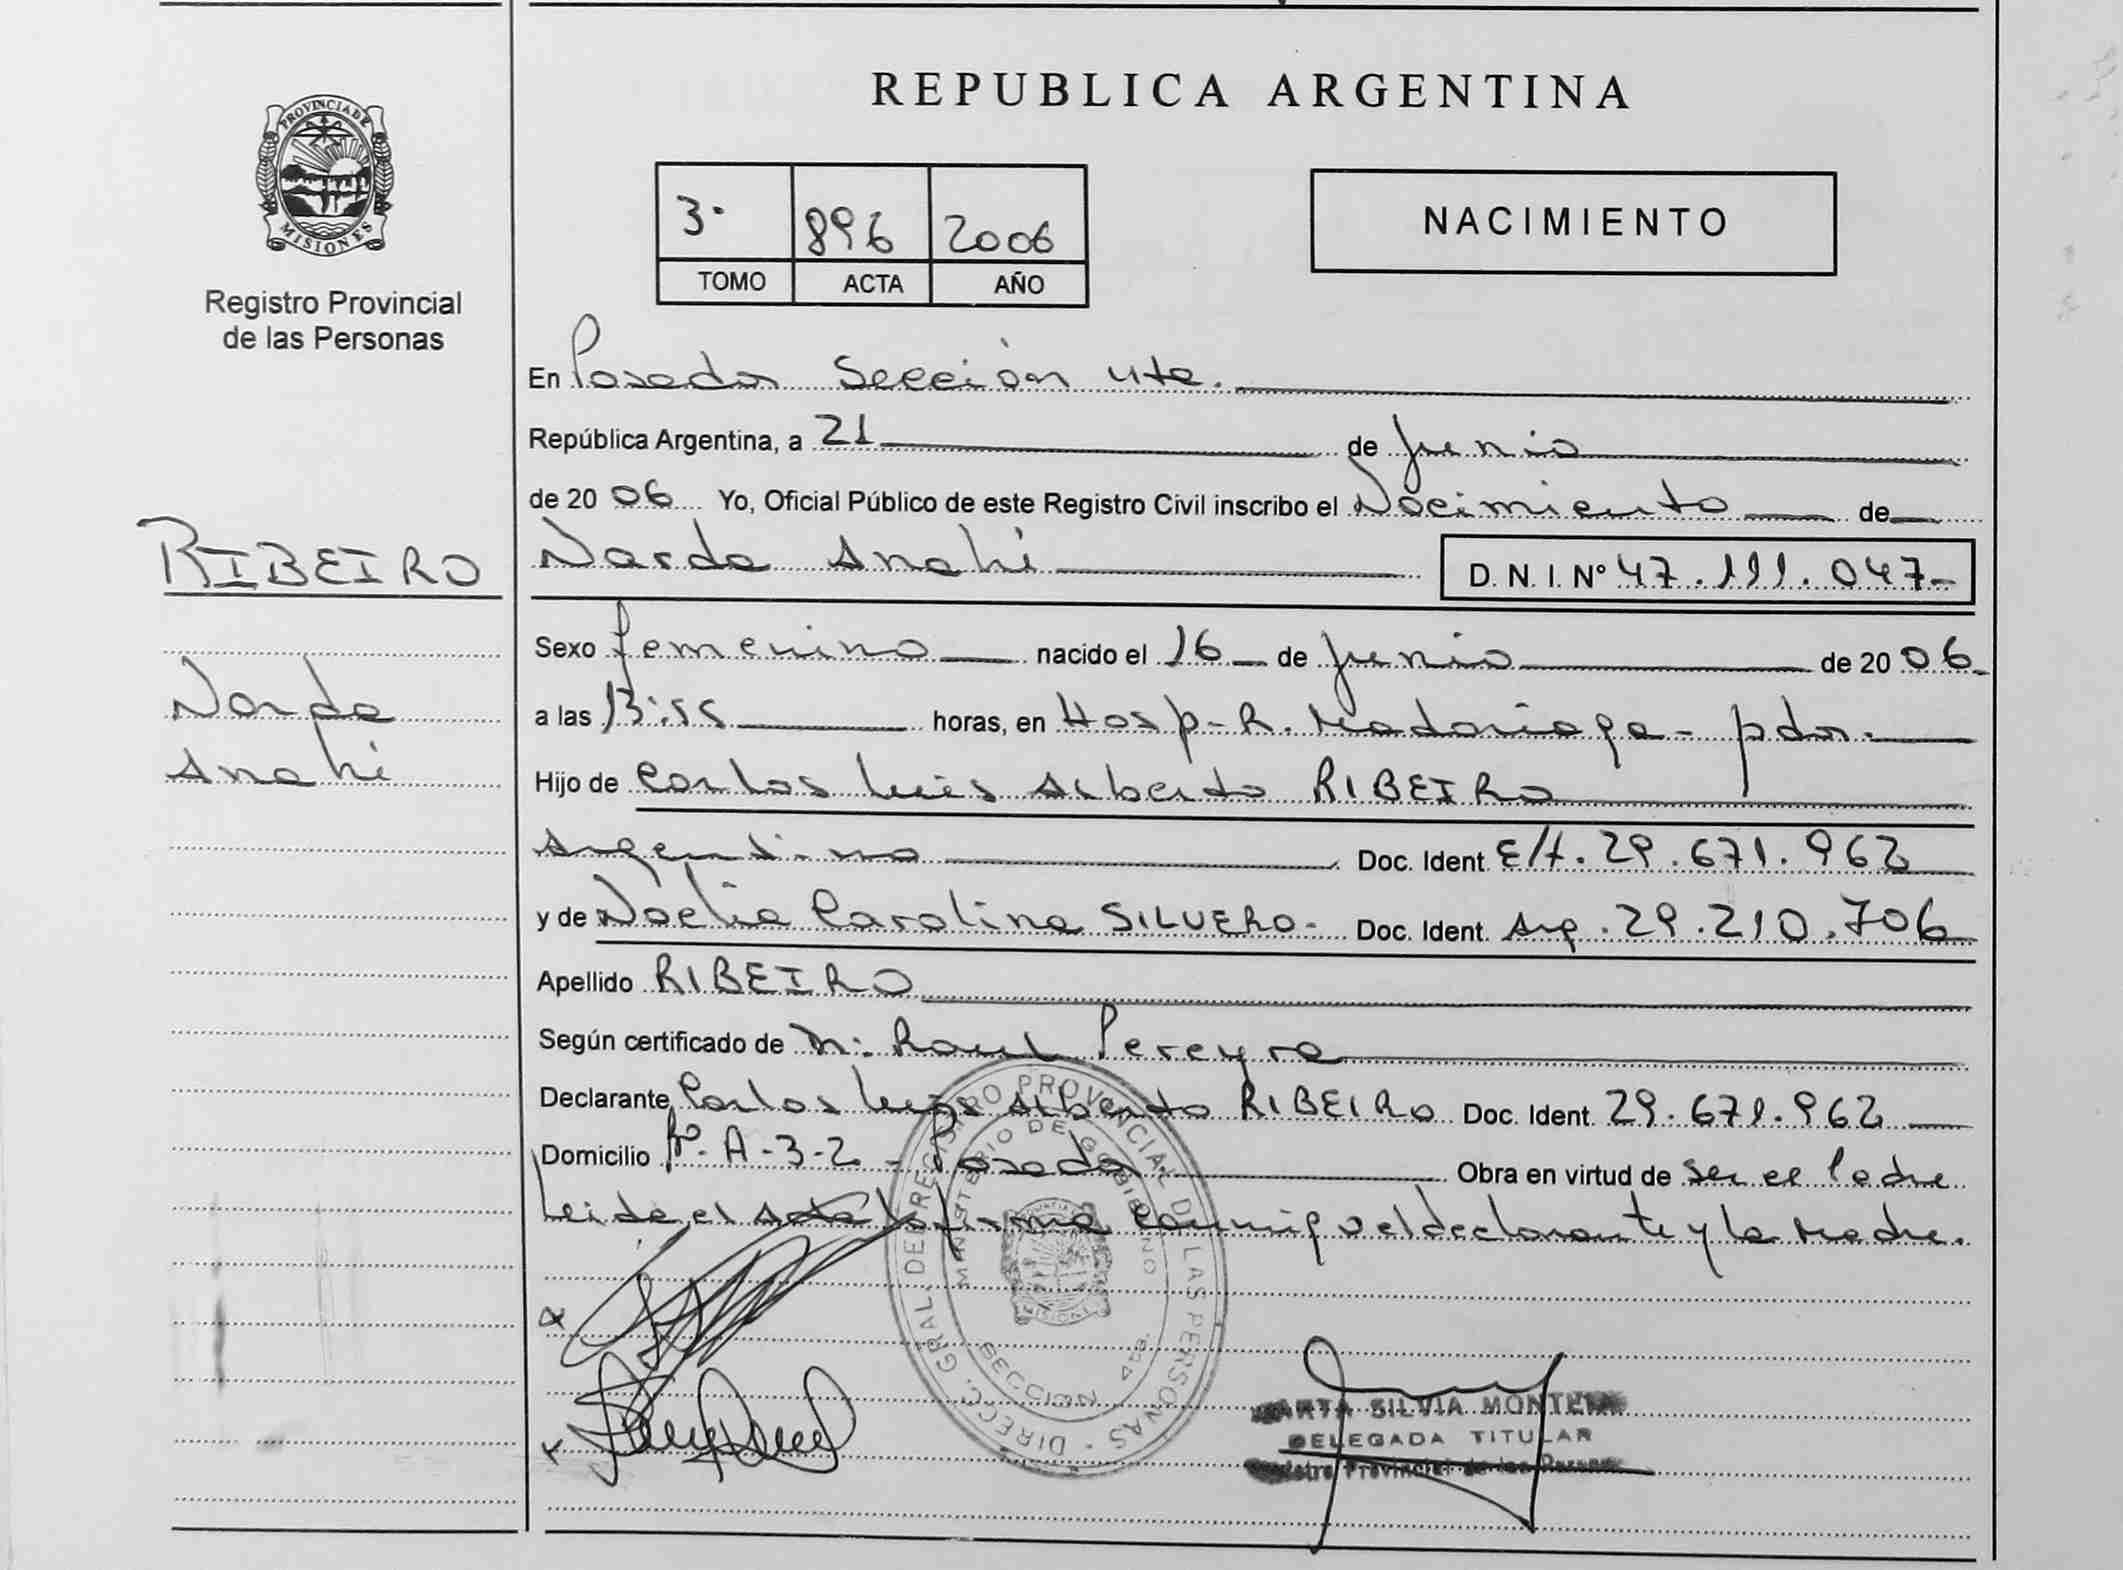 PROVINCIA DE
MISIONES
Registro Provincial
de las Personas
RIBEIRO
Narda
Anahi
REPUBLICA ARGENTINA
3º 896 2006
TOMO ACTA AÑO
NACIMIENTO
En Posadas Sección 4ta.
República Argentina, a 21 de Junio
de 2006 Yo, Oficial Público de este Registro Civil inscribo el Nacimiento de
Narda Anahi D. N. I. Nº 47.111.047-
Sexo femenino nacido el 16 de Junio de 2006
a las 13:55 horas, en Hosp-R. Madariaga- pdas.
Hijo de Carlos Luis Alberto RIBEIRO
Argentino Doc. Ident. 29.671.962
y de Noelia Carolina SILVERO- Doc. Ident. Arg. 29.210.706
Apellido RIBEIRO
Según certificado de Raul Pereyra
Declarante Carlos Luis Alberto RIBEIRO Doc. Ident. 29.671.962
Domicilio Bº. A-3-2 - Posadas Obra en virtud de ser el Padre
Leida el Acta la firma conmigo el declarante y la Madre.
DIRECC. GRAL. DEL REGISTRO PROVINCIAL DE LAS PERSONAS
MINISTERIO DE GOBIERNO
SECCION 4ta.
MARTA SILVIA
DELEGADA TITULAR
Registro Provincial de las Personas